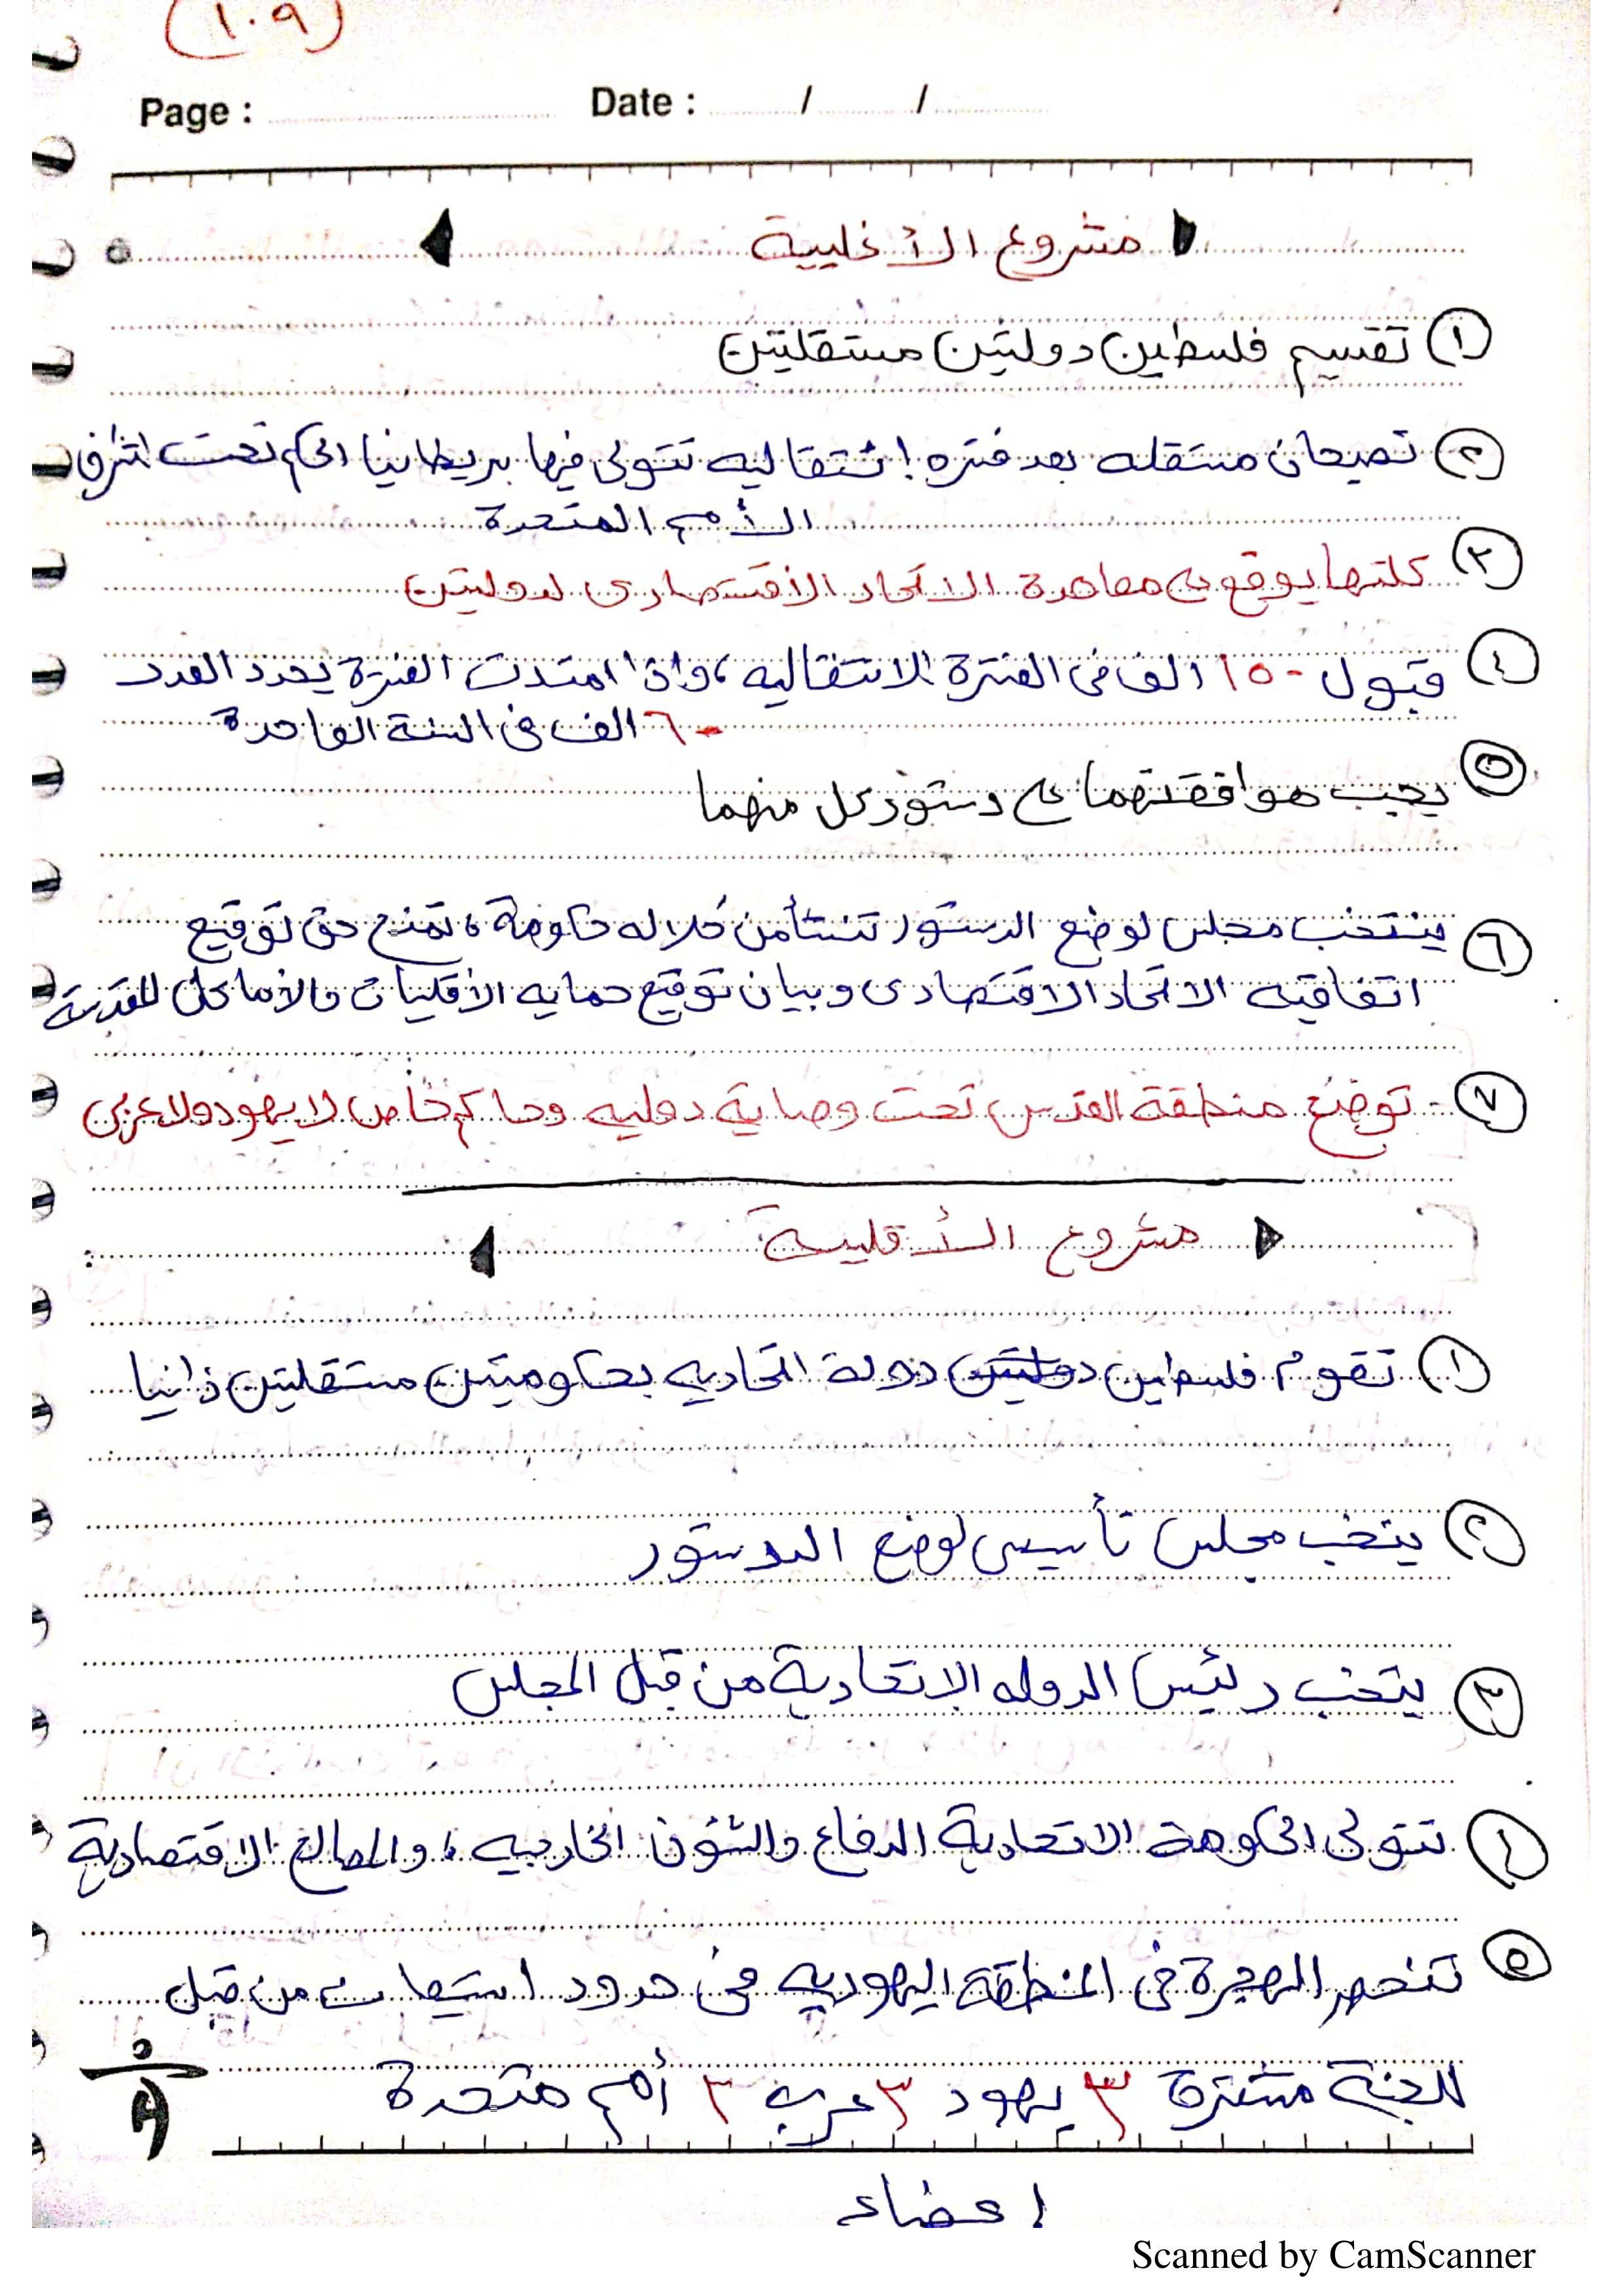 (١٠٩)
Page : Date : / /
مشروع الأغلبية
١ تقسيم فلسطين دولتين مستقلتين
٢ تصبحان مستقله بعد فتره انتقاليه تتولى فيها بريطانيا الحكم تحت اشراف
الأمم المتحدة
٣ كلتهما يوقع على معاهدة الاتحاد الاقتصادى لدولتين
٤ قبول ١٥٠ الف فى الفترة الانتقاليه ، واذا امتدت الفترة يحدد العدد
٦٠ الف فى السنة الواحدة
٥ يجب موافقتهما على دستور كل منهما
٦ ينتخب مجلس لوضع الدستور تنشأ من خلاله حكومة ، تمنح حق توقيع
اتفاقيه الاتحاد الاقتصادى وبيان توقيع حمايه الأقليات والأماكن المقدسة
٧ - توضع منطقة القدس تحت وصاية دوليه وحاكم خاص لا يهود ولا عربى
مشروع الأقلية
١ تقوم فلسطين دولتين دولة اتحاديه بحكوميتين مستقلتين ذاتيا
٢ ينتخب مجلس تأسيسى لوضع الدستور
٣ ينتخب رئيس الدوله الاتحادية من قبل المجلس
٤ تتولى الحكومة الاتحادية الدفاع والشؤن الخارجيه ، والمصالح الاقتصادية
٥ تنحصر الهجرة فى المنطقة اليهوديه فى حدود استيعاب من قبل
للجنة مشتركة ٣ يهود ٣ عرب ٣ أمم متحدة
اعضاء
Scanned by CamScanner